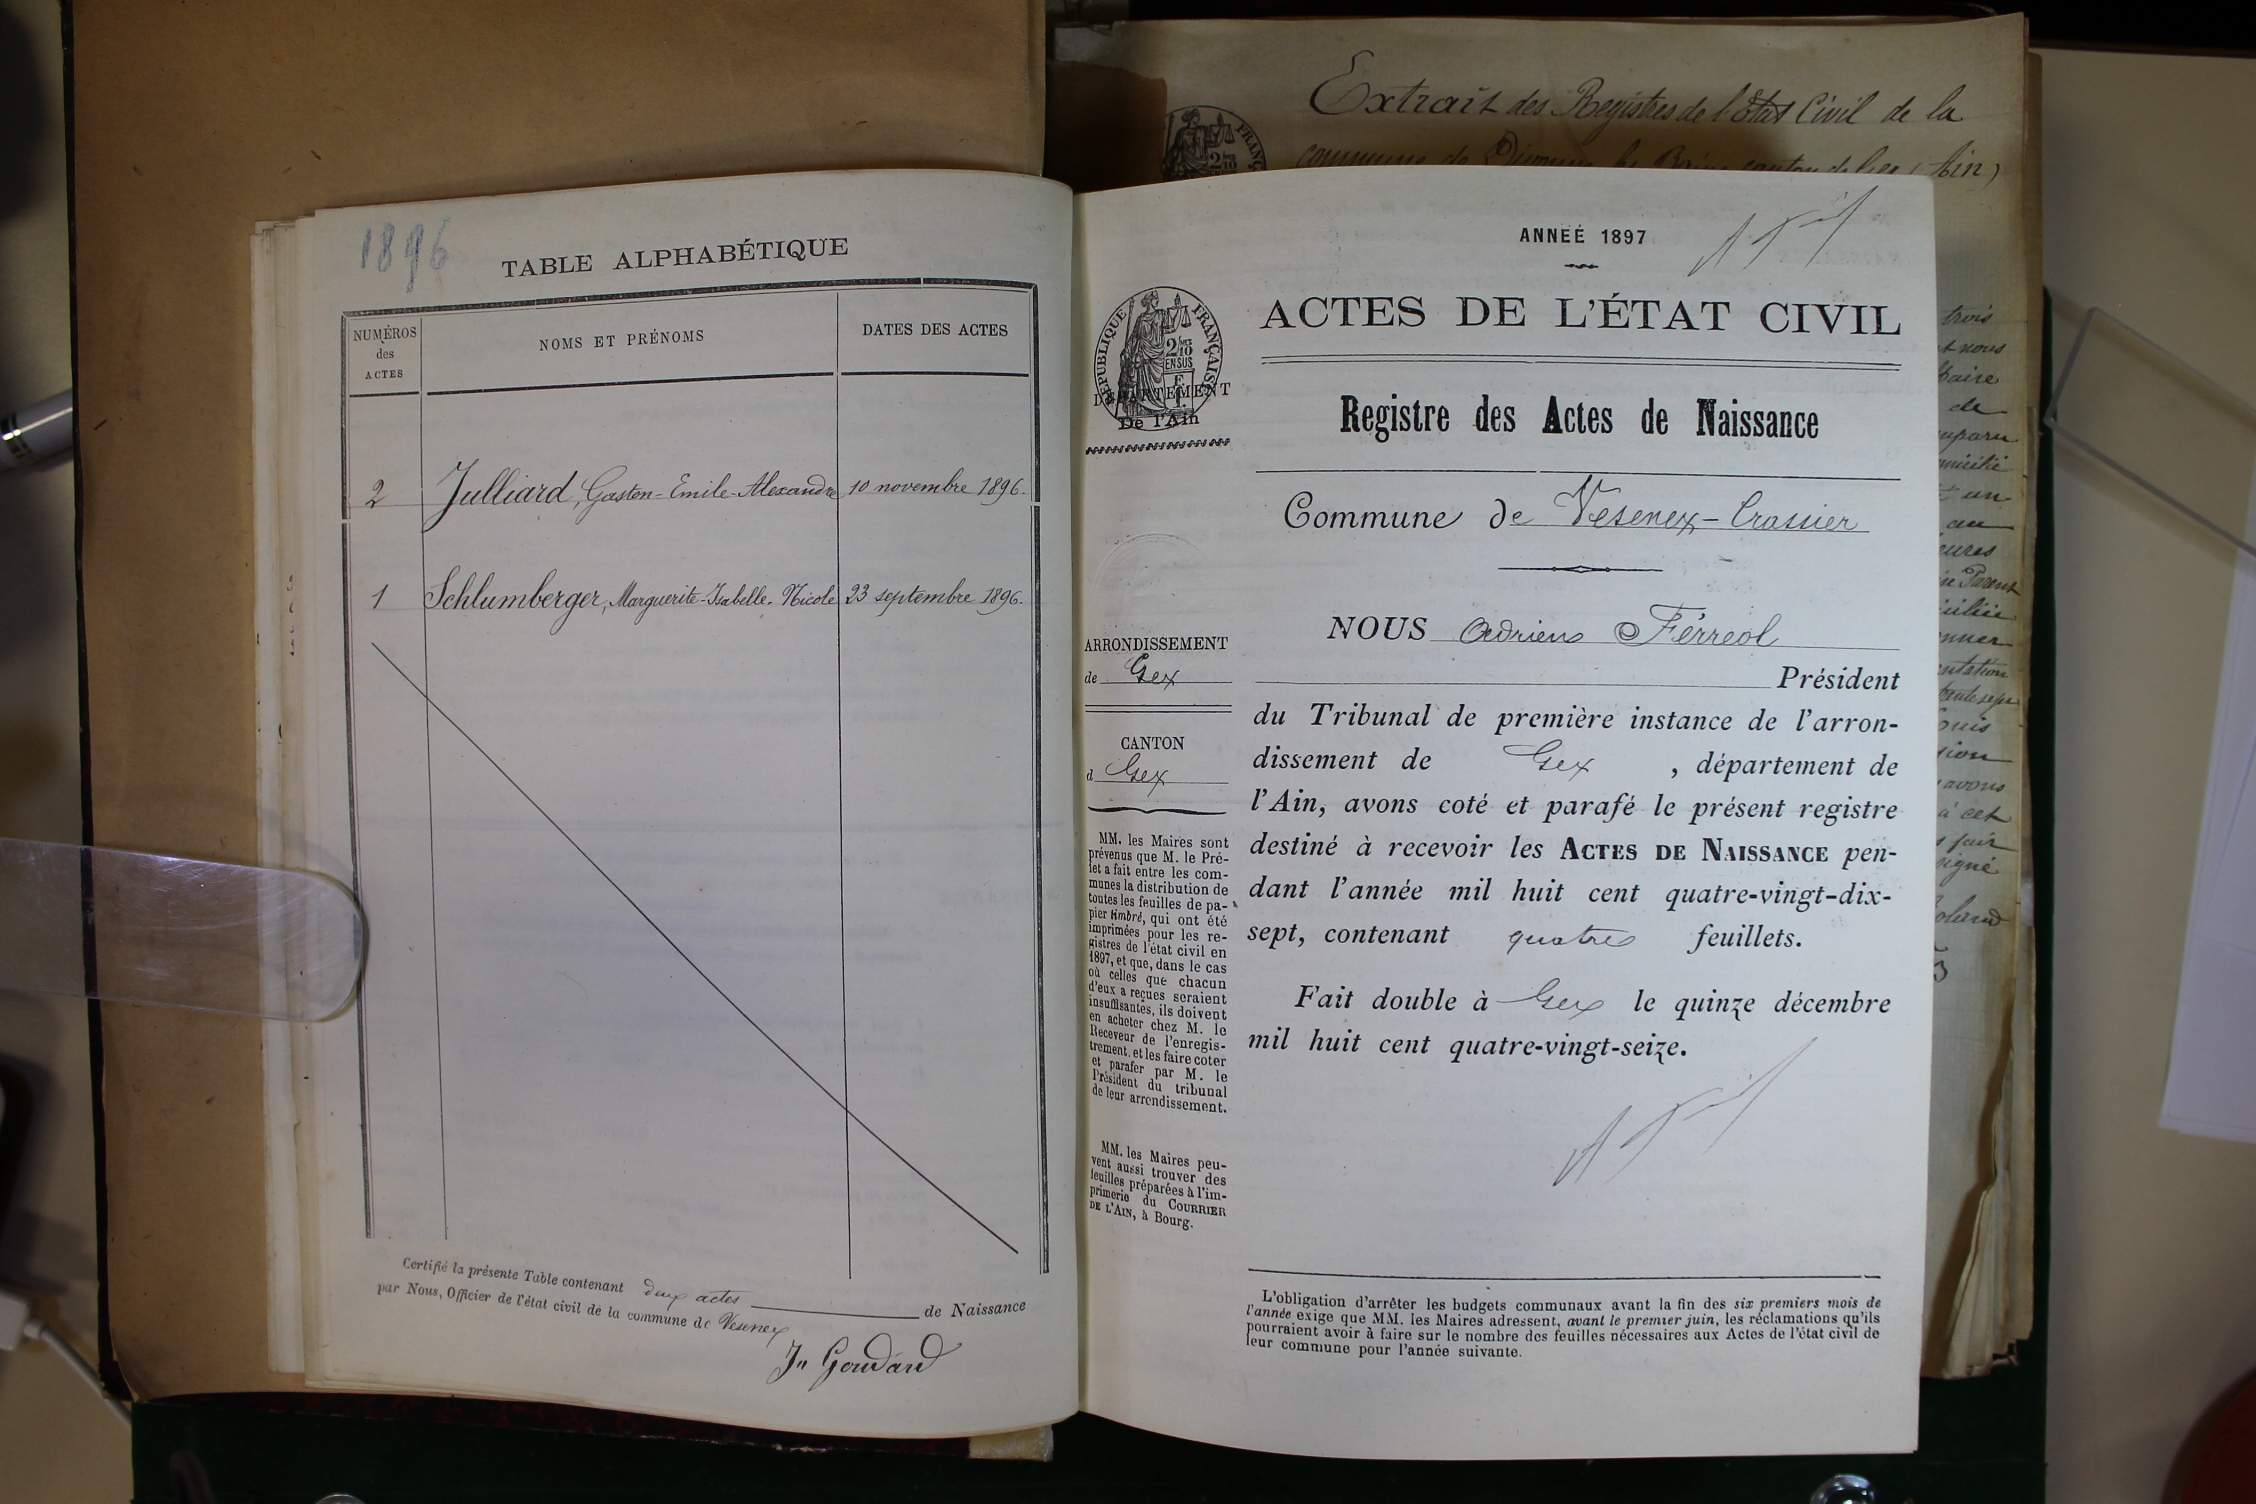 1896
TABLE ALPHABÉTIQUE
NUMÉROS
des
ACTES
NOMS ET PRÉNOMS
DATES DES ACTES
2 Julliard, Gaston-Emile-Alexandre 10 novembre 1896.
1 Schlumberger, Marguerite-Isabelle-Nicole 23 septembre 1896.
Certifié la présente Table contenant deux actes de Naissance
par Nous, Officier de l'état civil de la commune de Vesenex
Jn Goudard
Extrait des Registres de l'Etat Civil de la
commune de Divonne les Bains canton de Gex (Ain)
ANNEÉ 1897
RÉPUBLIQUE FRANÇAISE
2/10
EN SUS
DÉPARTEMENT
De l'Ain
ARRONDISSEMENT
de Gex
CANTON
d Gex
MM. les Maires sont
prévenus que M. le Pré-
fet a fait entre les com-
munes la distribution de
toutes les feuilles de pa-
pier timbré, qui ont été
imprimées pour les re-
gistres de l'état civil en
1897, et que, dans le cas
où celles que chacun
d'eux a reçues seraient
insuffisantes, ils doivent
en acheter chez M. le
Receveur de l'enregis-
trement, et les faire coter
et parafer par M. le
Président du tribunal
de leur arrondissement.
MM. les Maires peu-
vent aussi trouver des
feuilles préparées à l'im-
primerie du COURRIER
DE L'AIN, à Bourg.
ACTES DE L'ÉTAT CIVIL
Registre des Actes de Naissance
Commune de Vesenex-Crassier
NOUS Adrien Férréol
Président
du Tribunal de première instance de l'arron-
dissement de Gex, département de
l'Ain, avons coté et parafé le présent registre
destiné à recevoir les ACTES DE NAISSANCE pen-
dant l'année mil huit cent quatre-vingt-dix-
sept, contenant quatre feuillets.
Fait double à Gex le quinze décembre
mil huit cent quatre-vingt-seize.
L'obligation d'arrêter les budgets communaux avant la fin des six premiers mois de
l'année exige que MM. les Maires adressent, avant le premier juin, les réclamations qu'ils
pourraient avoir à faire sur le nombre des feuilles nécessaires aux Actes de l'état civil de
leur commune pour l'année suivante.
trois
nous
de
un
au
avons
à cet